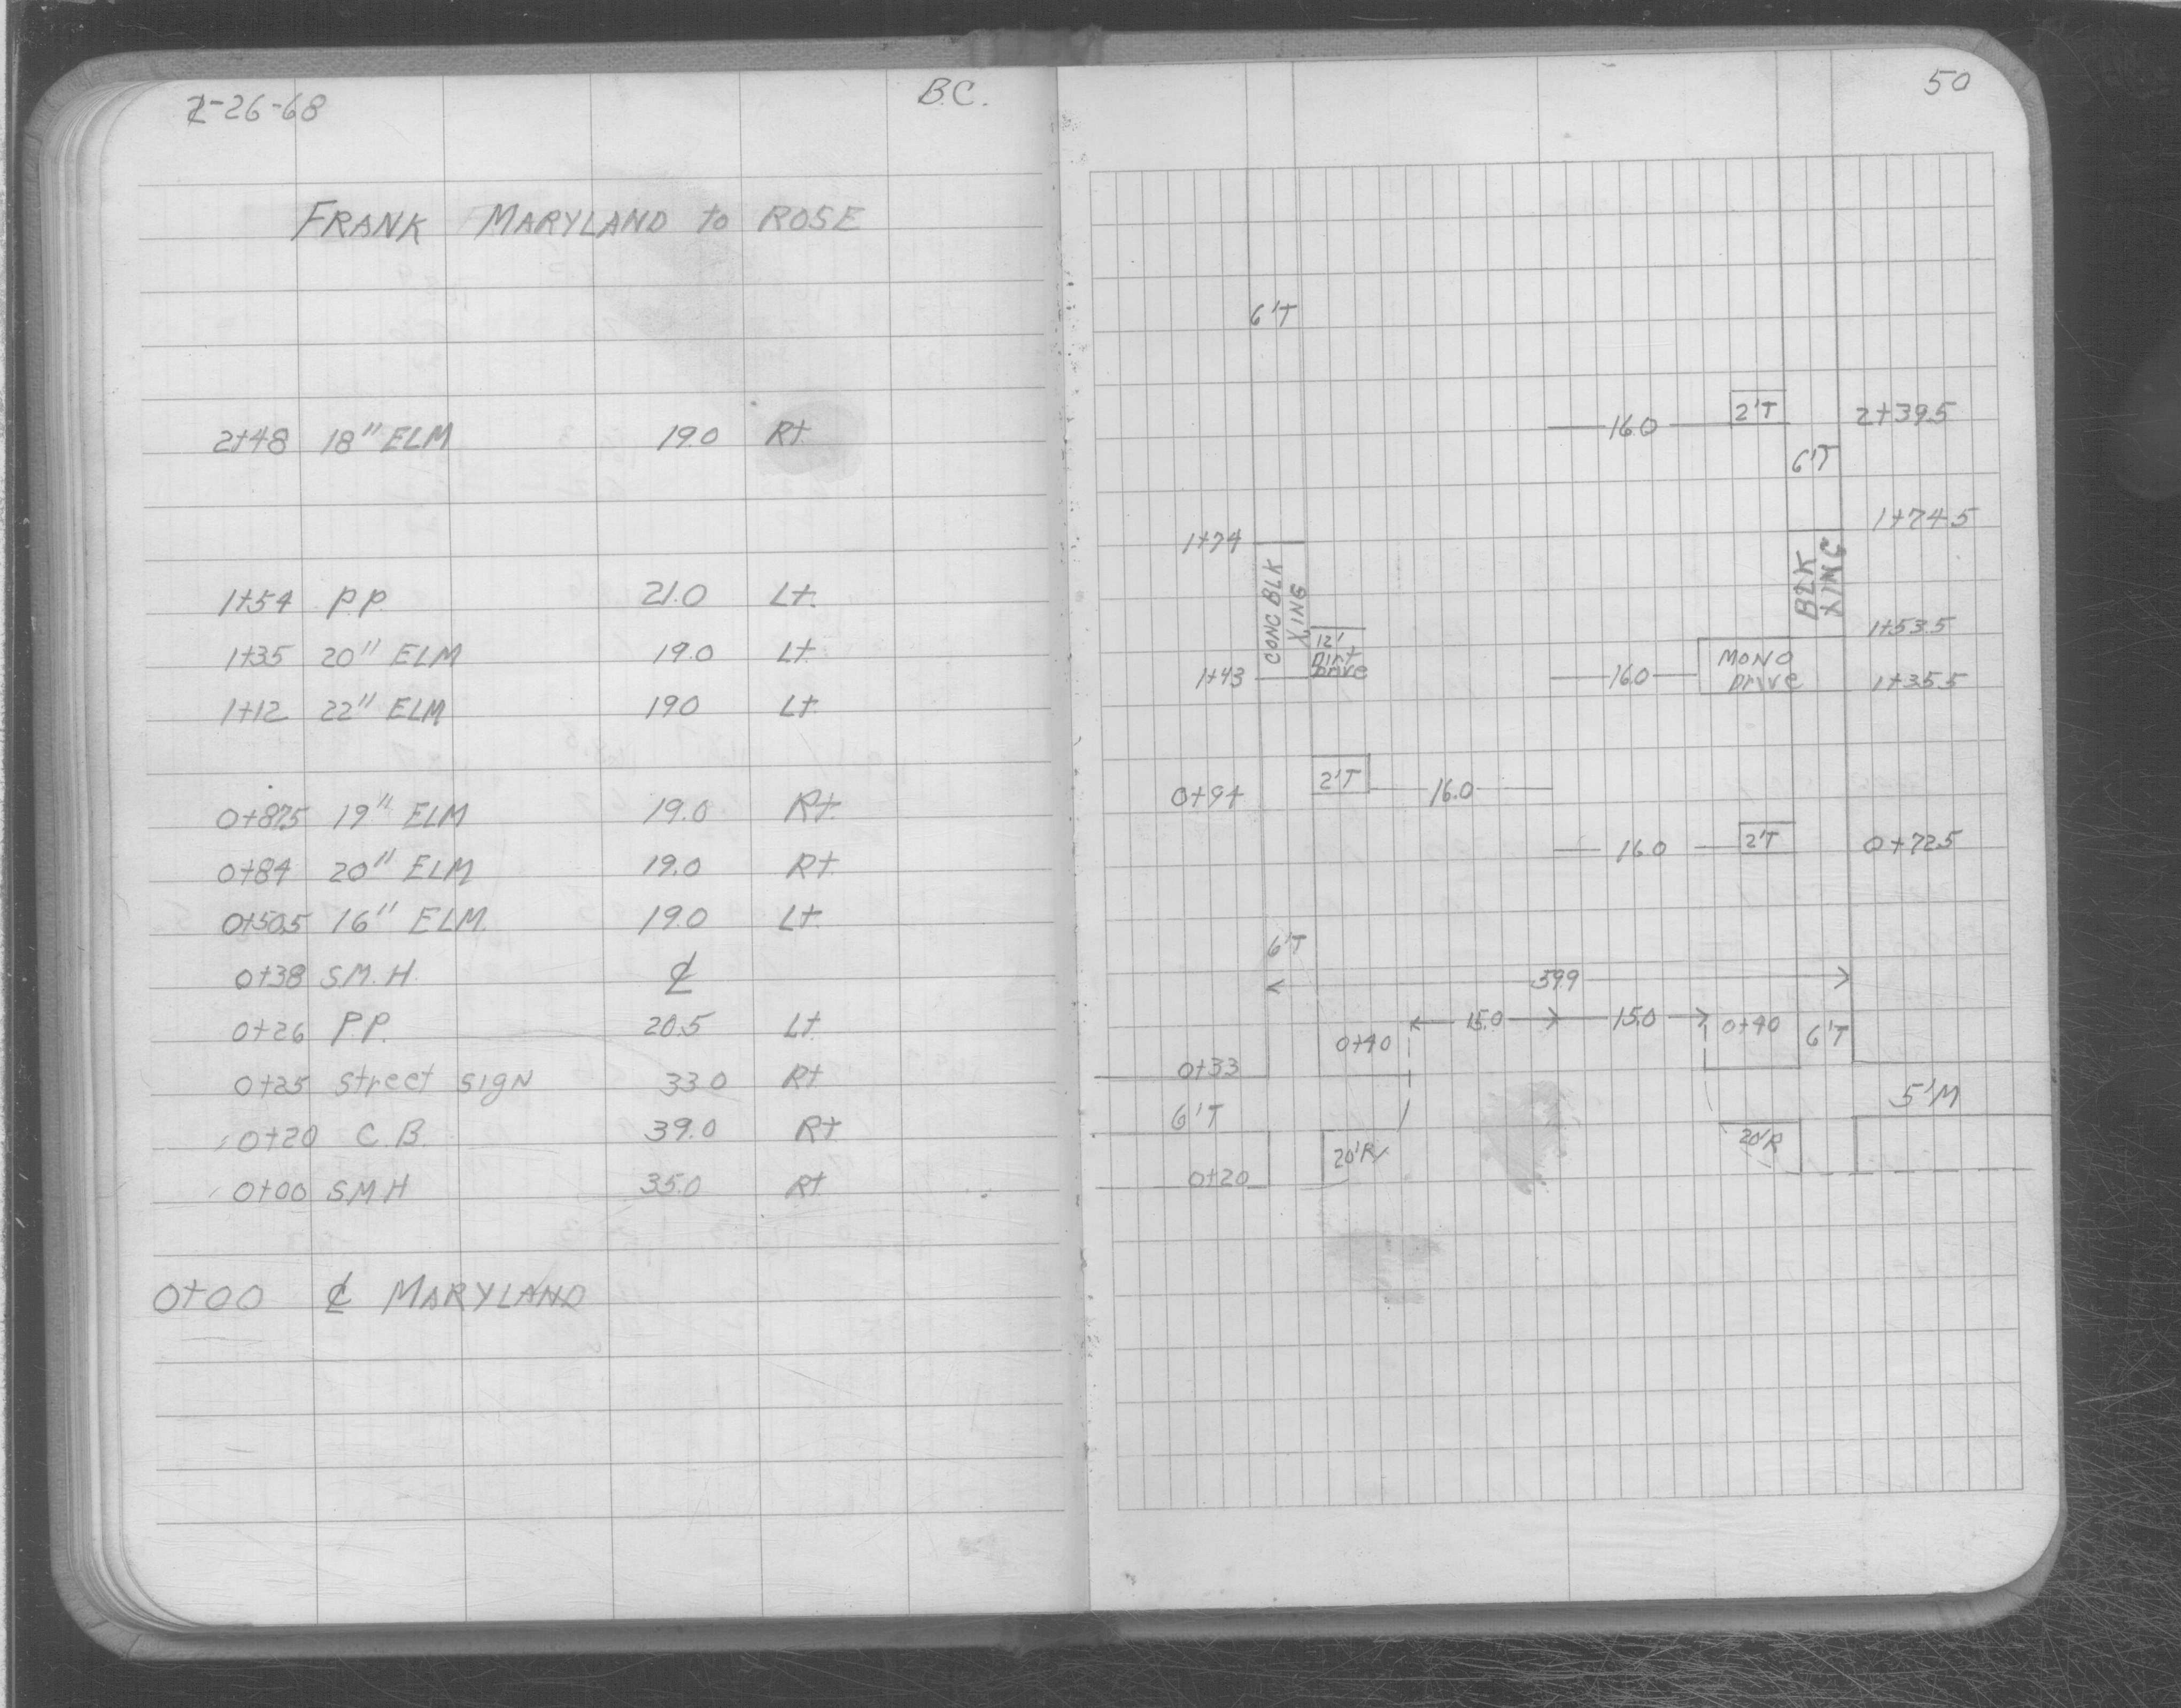 2-26-68
B.C.
FRANK MARYLAND to ROSE
2+48 18" ELM 19.0 Rt
1+54 P.P. 21.0 Lt.
1+35 20" ELM 19.0 Lt
1+12 22" ELM 19.0 Lt
0+87.5 19" ELM 19.0 Rt.
0+84 20" ELM 19.0 Rt
0+50.5 16" ELM 19.0 Lt
0+38 S.M.H. ℄
0+26 P.P. 20.5 Lt
0+25 street sign 33.0 Rt
0+20 C.B. 39.0 Rt
0+00 S.M.H 35.0 Rt
0+00 ℄ MARYLAND
50
6'T
16.0 2'T 2+39.5
6'T
1+74.5
1+74
CONC BLK
XING
BLK
XING
1+53.5
12'
Dirt
Drive
MONO
Drive
1+43
16.0
1+35.5
0+94 2'T 16.0
16.0 2'T 0+72.5
6'T
39.9
15.0 15.0
0+40 0+40 6'T
0+33
6'T
5'M
20'R 20'R
0+20